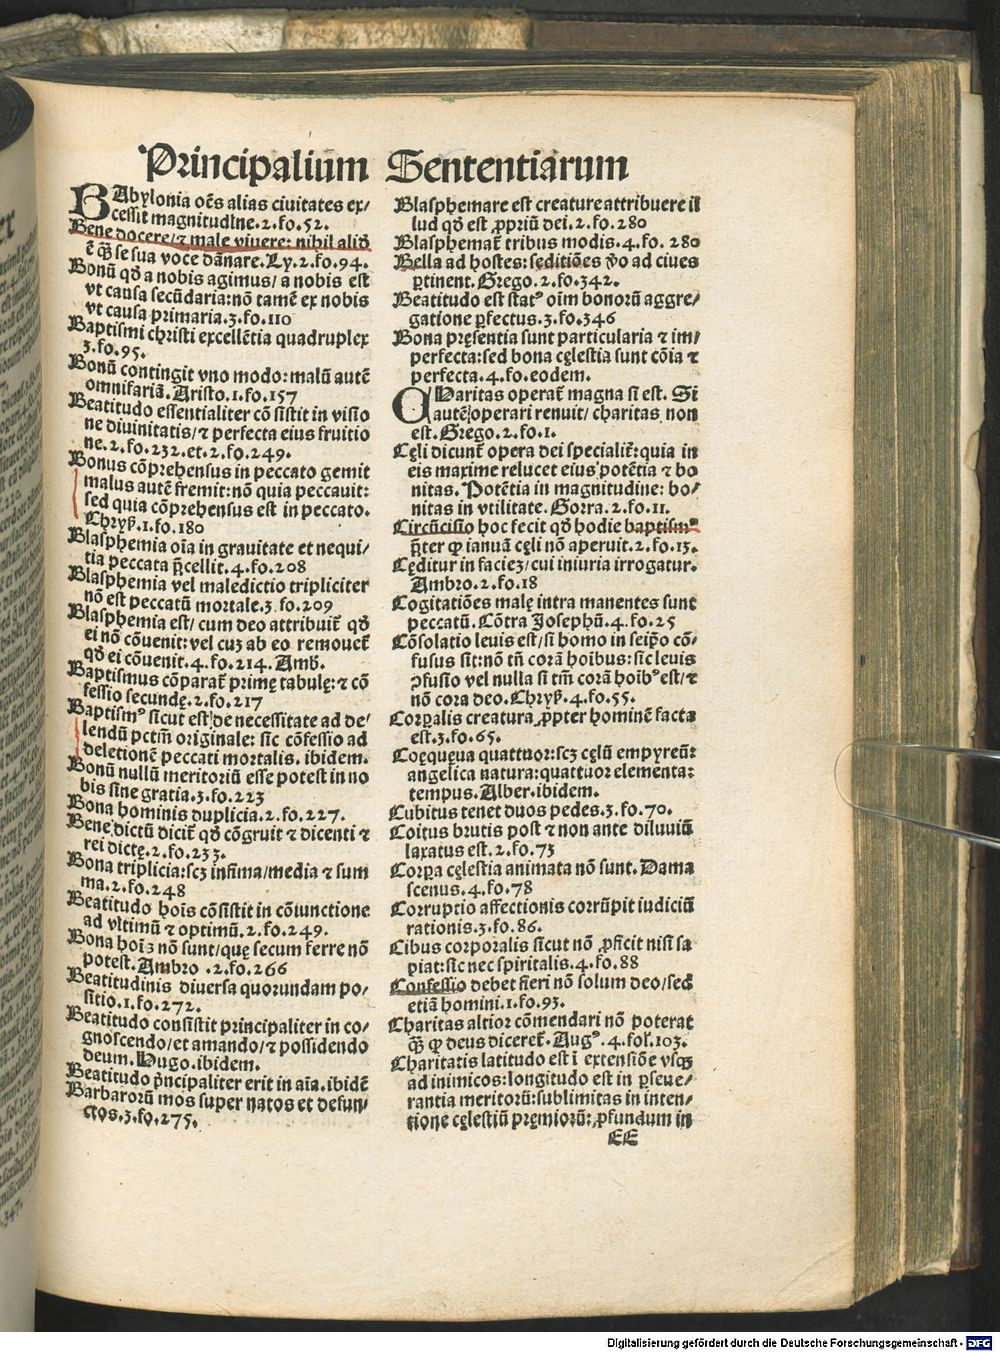 Principalium Sententiarum
BAbylonia oēs alias ciuitates ex/
cessit magnitudine.2.fo.52.
Bene docere/⁊ male viuere: nihil aliđ
ē q̄ʒ se sua voce dānare.Ly.2.fo.94.
Bonū qđ a nobis agimus/ a nobis est
vt causa secūdaria:nō tamē ex nobis
vt causa primaria.3.fo.110
Baptismi christi excellētia quadruplex
3.fo.95.
Bonū contingit vno modo:malū autē
omnifariā.Aristo.1.fo.157
Beatitudo essentialiter cō sistit in visio
ne diuinitatis/⁊ perfecta eius fruitio
ne.2.fo.232.et.2.fo.249.
Bonus cōprehensus in peccato gemit
malus autē fremit:nō quia peccauit:
sed quia cōprehensus est in peccato.
Chryß.1.fo.180
Blasphemia oīa in grauitate et nequi/
tia peccata p̄cellit.4.fo.208
Blasphemia vel maledictio tripliciter
nō est peccatū mortale.3.fo.209
Blasphemia est/ cum deo attribuit̄ qđ
ei nō cōuenit:vel cuʒ ab eo remouet̄
qđ ei cōuenit.4.fo.214.Amb̄.
Baptismus cōparat̄ primę tabulę:⁊ cō
fessio secundę.2.fo.217
Baptismꝰ sicut est de necessitate ad de/
lendū pctm̄ originale: sic cōfessio ad
deletionē peccati mortalis. ibidem.
Bonū nullū meritoriū esse potest in no
bis sine gratia.3.fo.223
Bona hominis duplicia.2.fo.227.
Bene dictū dicit̄ qđ cōgruit ⁊ dicenti ⁊
rei dictę.2.fo.233.
Bona triplicia:scʒ infima/media ⁊ sum
ma.2.fo.248
Beatitudo hoīs cōsistit in cōiunctione
ad vltimū ⁊ optimū.2.fo.249.
Bona hoīʒ nō sunt/quę secum ferre nō
potest.Ambro .2.fo.266
Beatitudinis diuersa quorundam po/
sitio.1.fo.272.
Beatitudo consistit principaliter in co/
gnoscendo/et amando/⁊ possidendo
deum.Hugo.ibidem.
Beatitudo p̄ncipaliter erit in aīa.ibidē
Barbarorū mos super natos et defun/
ctos.3.fo.275.
Blasphemare est creature attribuere il
lud qđ est ꝓpriū dei.2.fo.280
Blasphemat̄ tribus modis.4.fo. 280
Bella ad hostes:seditiōes v̆o ad ciues
ꝑtinent.Grego.2.fo.342.
Beatitudo est statꝰ oīm bonorū aggre/
gatione ꝑfectus.3.fo.346
Bona pręsentia sunt particularia ⁊ im/
perfecta:sed bona cęlestia sunt cōīa ⁊
perfecta.4.fo.eodem.
CHaritas operat̄ magna si est. Si
autē operari renuit/ charitas non
est.Grego.2.fo.1.
Cęli dicunt̄ opera dei specialit̄:quia in
eis maxime relucet eius potētia ⁊ bo
nitas.Potētia in magnitudine: bo/
nitas in vtilitate.Gorra.2.fo.11.
Circūcisio hoc fecit qđ hodie baptismꝰ
p̄ter ꝙ ianuā cęli nō aperuit.2.fo.15.
Cęditur in facieʒ/cui iniuria irrogatur.
Ambro.2.fo.18
Cogitatiōes malę intra manentes sunt
peccatū.Cōtra Josephū.4.fo.25
Cōsolatio leuis est/si homo in seip̄o cō/
fusus sit:nō tn̄ corā hoībus:sic leuis
ꝯfusio vel nulla si tm̄ corā hoībꝰ est/⁊
nō cora deo.Chryß.4.fo.55.
Corꝑalis creatura ꝓpter hominē facta
est.3.fo.65.
Coęquęua quattuor:scʒ cęlū empyreū:
angelica natura:quattuor elementa:
tempus.Alber.ibidem.
Cubitus tenet duos pedes.3.fo.70.
Coitus brutis post ⁊ non ante diluuiū
laxatus est.2.fo.73
Corꝑa cęlestia animata nō sunt. Dama
scenus.4.fo.78
Corruptio affectionis corrūpit iudiciū
rationis.3.fo.86.
Cibus corporalis sicut nō ꝓficit nisi sa
piat:sic nec spiritalis.4.fo.88
Confessio debet fieri nō solum deo/sed
etiā homini.1.fo.93.
Charitas altior cōmendari nō poterat
q̄ʒ ꝙ deus diceret̄. Augꝰ.4.fol.103.
Charitatis latitudo est ī extensiōe vsqʒ
ad inimicos:longitudo est in ꝑseue/
rantia meritorū:sublimitas in inten/
tione cęlestiū pręmiorū:ꝓfundum in
EE
Digitalisierung gefördert durch die Deutsche Forschungsgemeinschaft - DFG